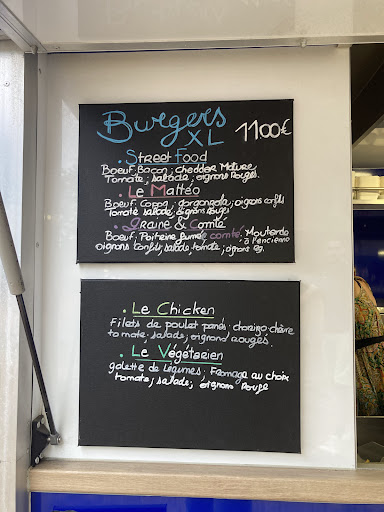 Burgers
XL 1100€
. Street food
Boeuf. Bacon; cheddar Mature
Tomate; salade; oignons Rouges.
. Le Maltéo
Boeuf. Coppa; gorgonzola; oignons confits
Tomate salade oignons rouges
. Graine & Comté
Boeuf. Poitrine fumée comté. Moutarde à l'ancienne
oignons confits; salade, tomate; oignons
. Le Chicken
Filets de poulet panés. chorizo. chèvre
tomate. salade; oignons rouges.
. Le Végétarien
galette de légumes. Fromage au choix
tomate; salade; oignons Rouge